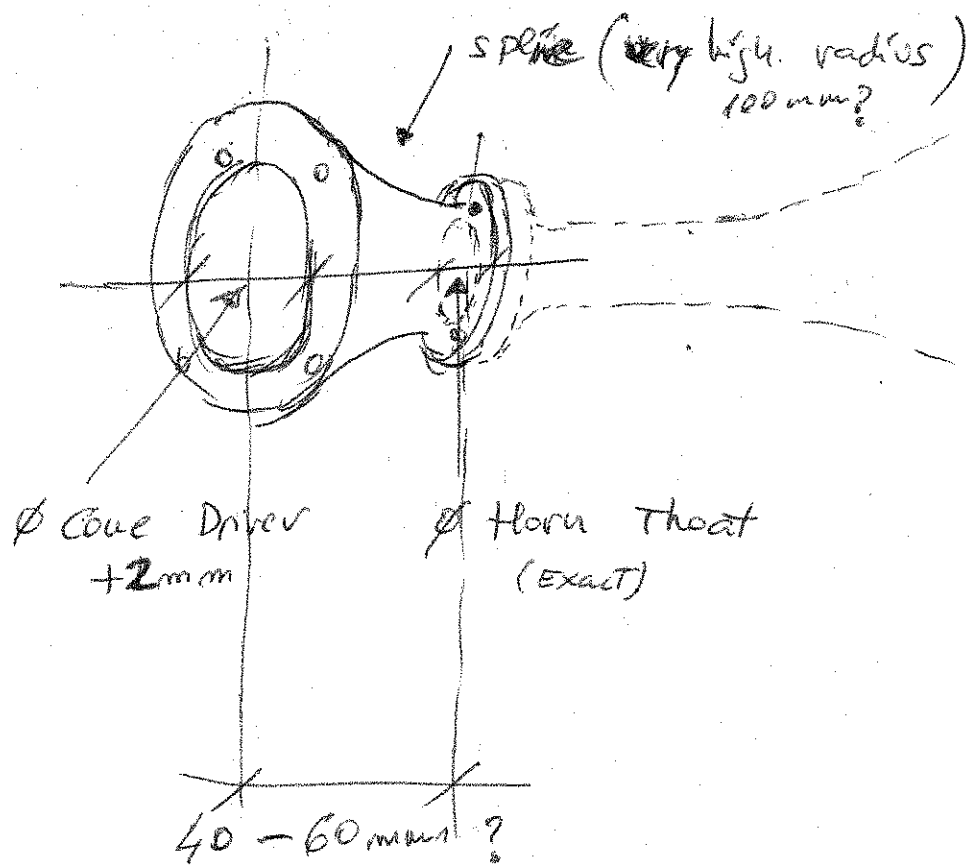 spline (very high. radius)
100mm?
Ø Cone Driver
+2mm
Ø Horn Thoat
(EXACT)
40 - 60mm ?